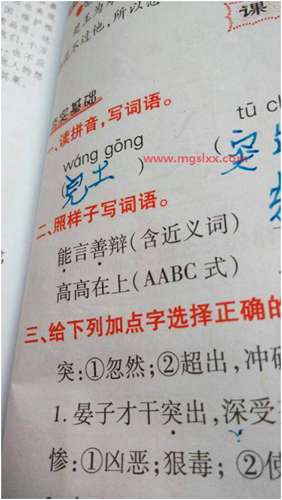 课
定基础
一、读拼音,写词语。
wáng gōng
tū ch
(
)
突
www.mgslxx.com
二、照样子写词语。
能言善辩(含近义词)
高高在上(AABC式)
三、给下列加点字选择正确的
突:①忽然;②超出,冲破
1.晏子才干突出,深受
惨:①凶恶;狠毒;②使